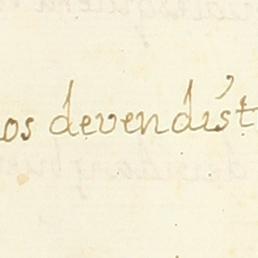 os devendíst